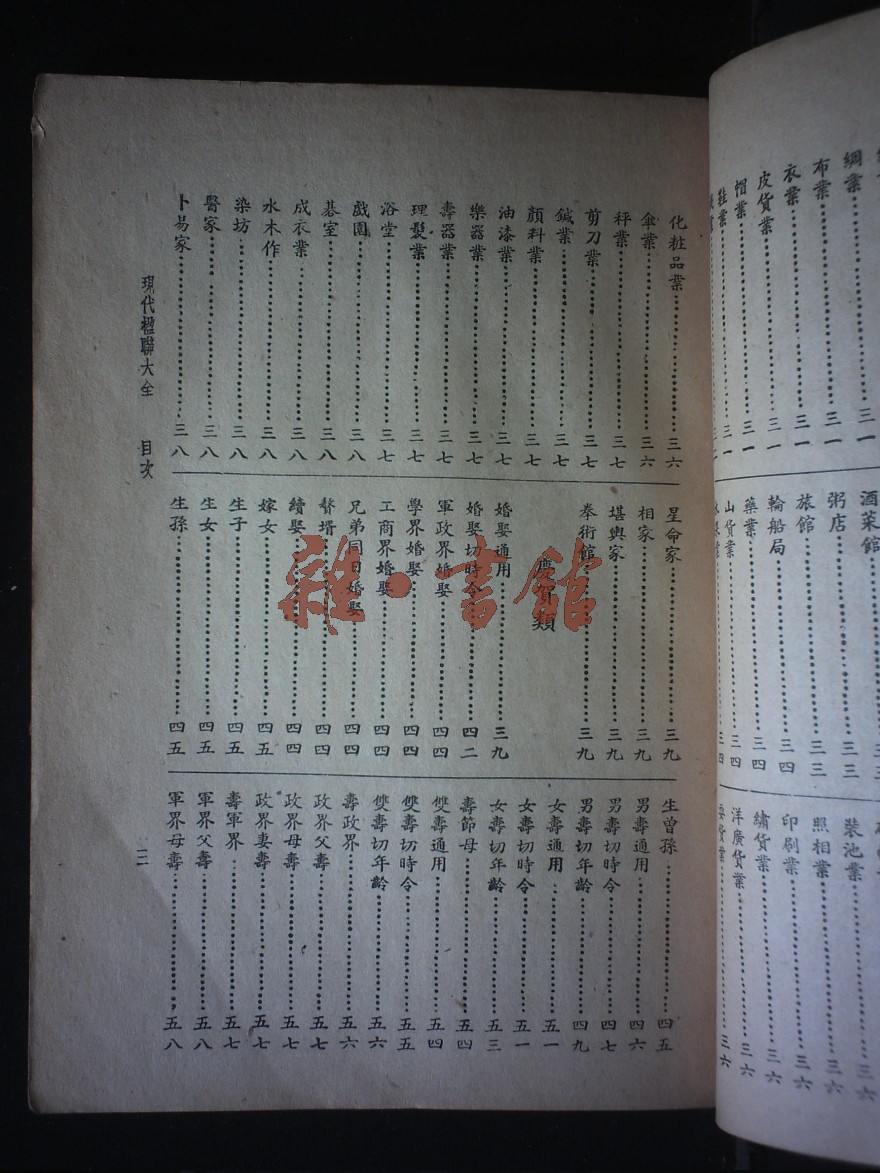 綢業……三一
布業……三一
衣業……三一
皮貨業……三一
帽業……三一
鞋業
酒菜館……三三
粥店……三三
旅館……三四
輪船局……三四
藥業……三四
山貨業……三四
裝池業……三六
照相業……三六
印刷業……三六
繡貨業……三六
洋廣貨業……三六
化粧品業……三六
傘業……三六
秤業……三七
剪刀業……三七
鍼業……三七
顏料業……三七
油漆業……三七
樂器業……三七
壽器業……三七
理髮業……三七
浴堂……三七
戲園……三八
碁室……三八
成衣業……三八
水木作……三八
染坊……三八
醫家……三八
卜易家……三八
星命家……三九
相家……三九
堪輿家……三九
拳術館……三九
慶賀類
婚娶通用……三九
婚娶切時令……四二
軍政界婚娶……四四
學界婚娶……四四
工商界婚娶……四四
兄弟同日婚娶……四四
贅壻……四四
續娶……四四
嫁女……四五
生子……四五
生女……四五
生孫……四五
生曾孫……四五
男壽通用……四六
男壽切時令……四七
男壽切年齡……四九
女壽通用……五一
女壽切時令……五一
女壽切年齡……五三
壽節母……五四
雙壽通用……五四
雙壽切時令……五五
雙壽切年齡……五六
壽政界……五六
政界父壽……五七
政界母壽……五七
政界妻壽……五七
壽軍界……五七
軍界父壽……五八
軍界母壽……五八
現代楹聯大全 目次
雜·書館